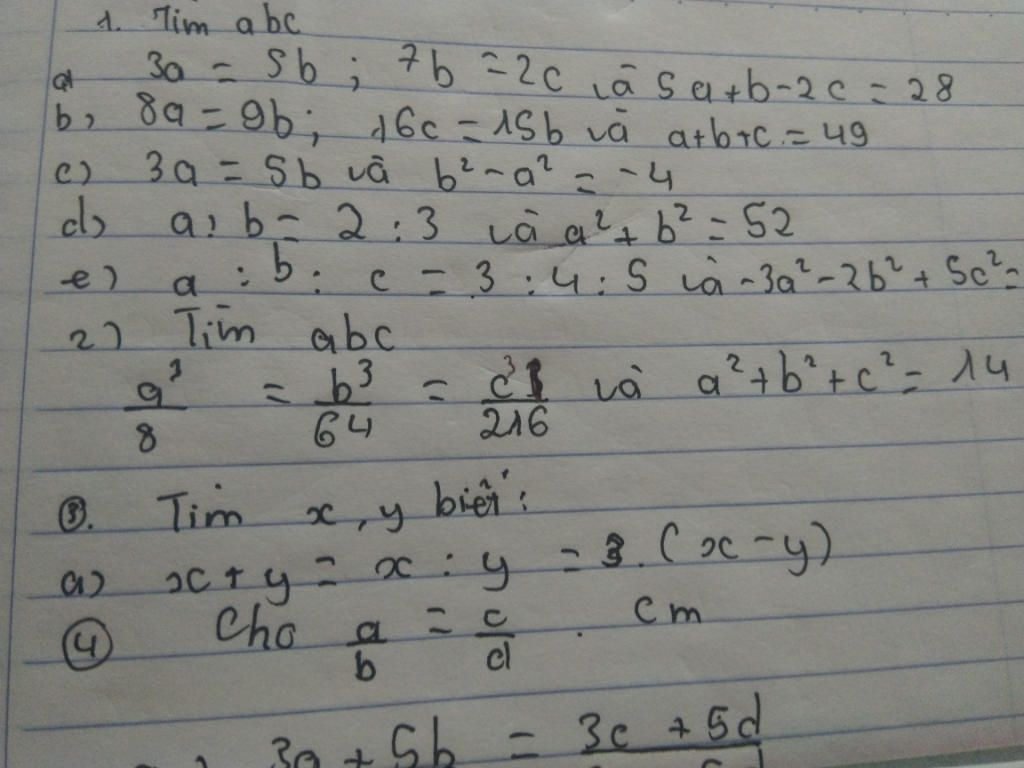 1. Tìm abc
a) 3a = 5b ; 7b = 2c và 5a+b-2c = 28
b, 8a = 9b ; 16c = 15b và a+b+c = 49
c) 3a = 5b và b² - a² = -4
d) a : b = 2 : 3 và a² + b² = 52
e) a : b : c = 3 : 4 : 5 và -3a² - 2b² + 5c² =
2) Tìm abc
a³/8 = b³/64 = c³/216 và a² + b² + c² = 14
③. Tìm x, y biết :
a) x + y = x : y = 3. (x - y)
④ Cho a/b = c/d . cm
3a + 5b = 3c + 5d